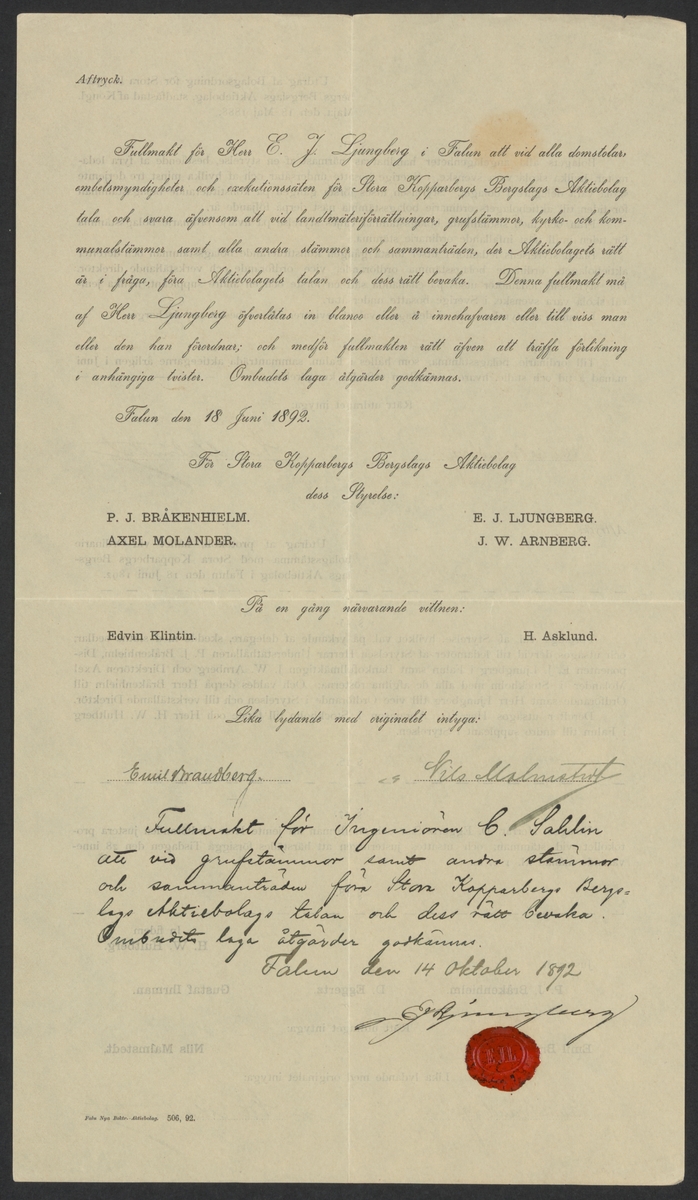 Aftryck.
Fullmakt för Herr E. J. Ljungberg i Falun att vid alla domstolar,
embetsmyndigheter och exekutionssäten för Stora Kopparbergs Bergslags Aktiebolag
tala och svara äfvensom att vid landtmäteriförrättningar, grufstämmor, kyrko- och kom-
munalstämmor samt alla andra stämmor och sammanträden, der Aktiebolagets rätt
är i fråga, föra Aktiebolagets talan och dess rätt bevaka. Denna fullmakt må
af Herr Ljungberg öfverlåtas in blanco eller å innehafvaren eller till viss man
eller den han förordnar; och medför fullmakten rätt äfven att träffa förlikning
i anhängiga tvister. Ombudets laga åtgärder godkännas.
Falun den 18 Juni 1892.
För Stora Kopparbergs Bergslags Aktiebolag
dess Styrelse:
P. J. BRÅKENHIELM. E. J. LJUNGBERG.
AXEL MOLANDER. J. W. ARNBERG.
På en gång närvarande vittnen:
Edvin Klintin. H. Asklund.
Lika lydande med originalet intyga:
Emil Brandberg. Nils Malmstedt
Fullmakt för Ingeniören C. Sahlin
att vid grufstämmor samt andra stämmor
och sammanträden föra Stora Kopparbergs Bergs=
lags Aktiebolags talan och dess rätt bevaka.
Ombudets laga åtgärder godkännas.
Falun den 14 Oktober 1892
E J Ljungberg
Falu Nya Boktr.-Aktiebolag. 506, 92.